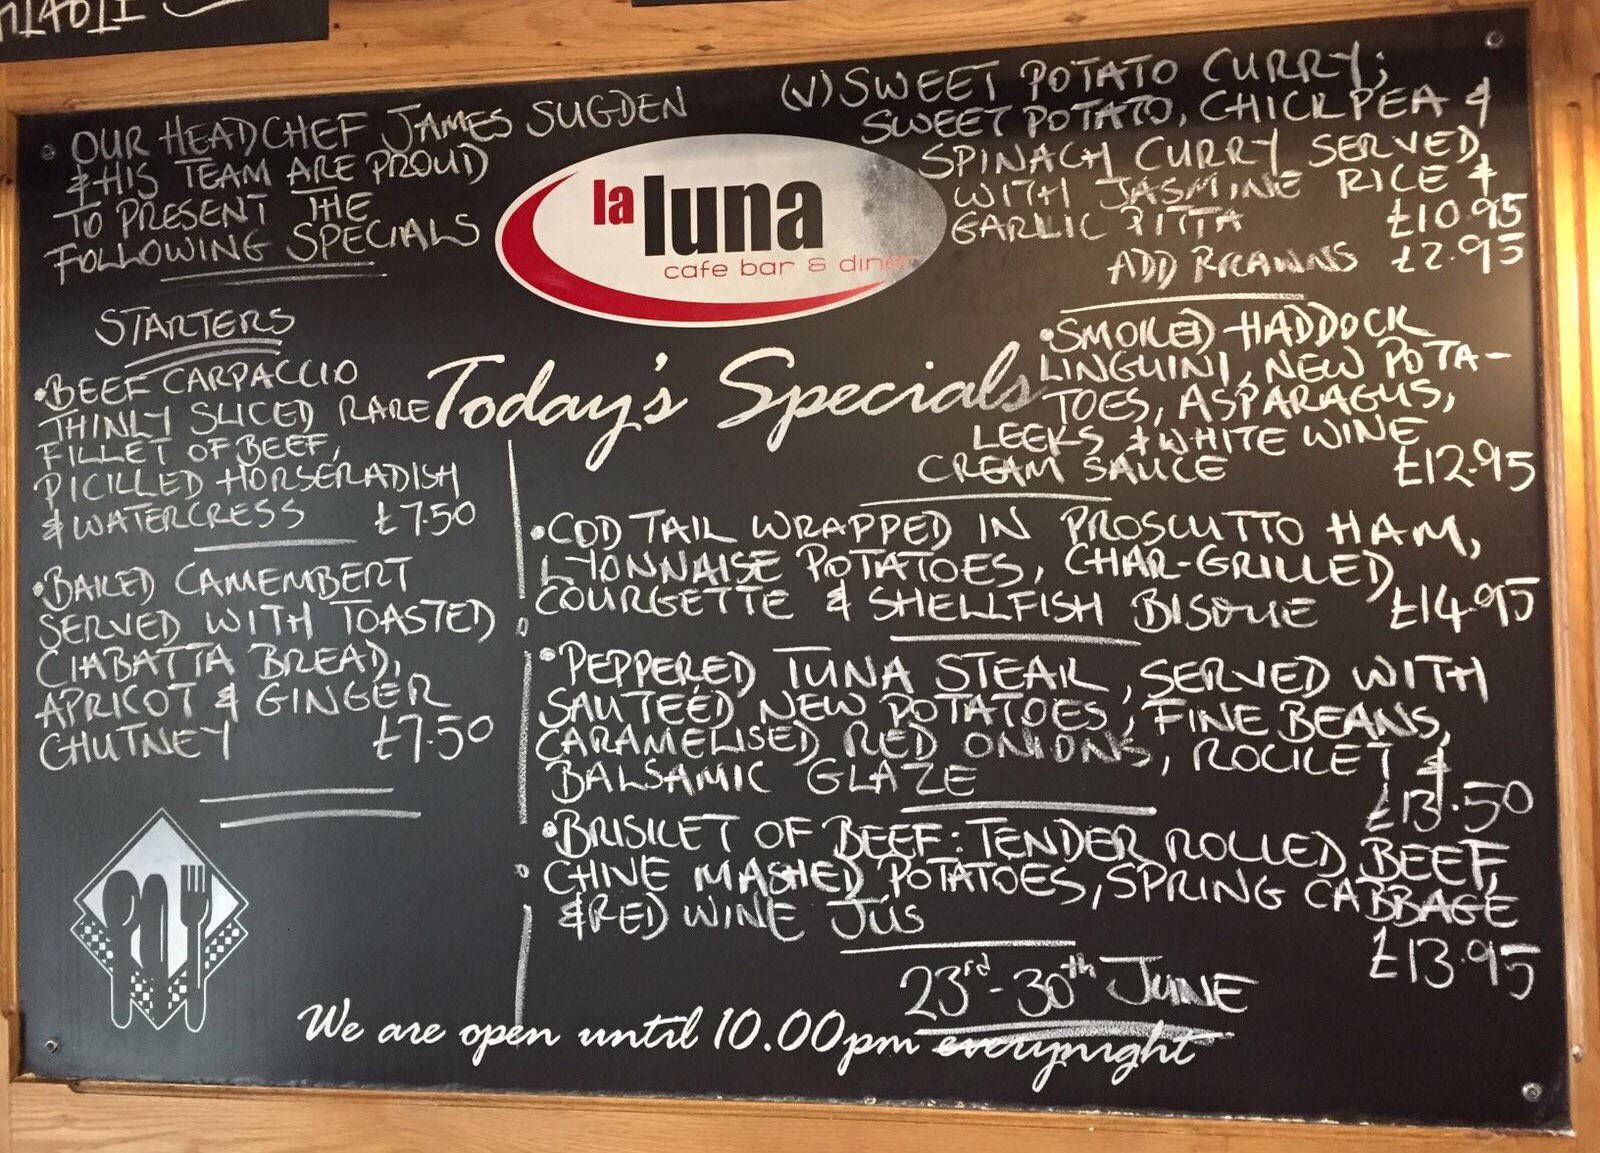 OUR HEADCHEF JAMES SUGDEN
& HIS TEAM ARE PROUD
TO PRESENT THE
FOLLOWING SPECIALS
la luna
cafe bar & diner
Today's Specials
STARTERS
• BEEF CARPACCIO
THINLY SLICED RARE
FILLET OF BEEF,
PICKLLED HORSERADISH
& WATERCRESS £7.50
• BAKED CAMEMBERT
SERVED WITH TOASTED
CIABATTA BREAD,
APRICOT & GINGER
CHUTNEY £7.50
(V) SWEET POTATO CURRY;
SWEET POTATO, CHICKPEA &
SPINACH CURRY SERVED
WITH JASMINE RICE &
GARLIC PITTA £10.95
ADD PRAWNS £2.95
• SMOKED HADDOCK
LINGUINI, NEW POTA-
TOES, ASPARAGUS,
LEEKS & WHITE WINE
CREAM SAUCE £12.95
• COD TAIL WRAPPED IN PROSCUTTO HAM,
LYONNAISE POTATOES, CHAR-GRILLED
COURGETTE & SHELLFISH BISQUE £14.95
• PEPPERED TUNA STEAK, SERVED WITH
SAUTEÉD NEW POTATOES, FINE BEANS,
CARAMELISED RED ONIONS, ROCKET &
BALSAMIC GLAZE £13.50
• BRISKET OF BEEF: TENDER ROLLED BEEF,
CHIVE MASHED POTATOES, SPRING CABBAGE
& RED WINE JUS £13.95
23rd - 30th JUNE
We are open until 10.00pm everynight